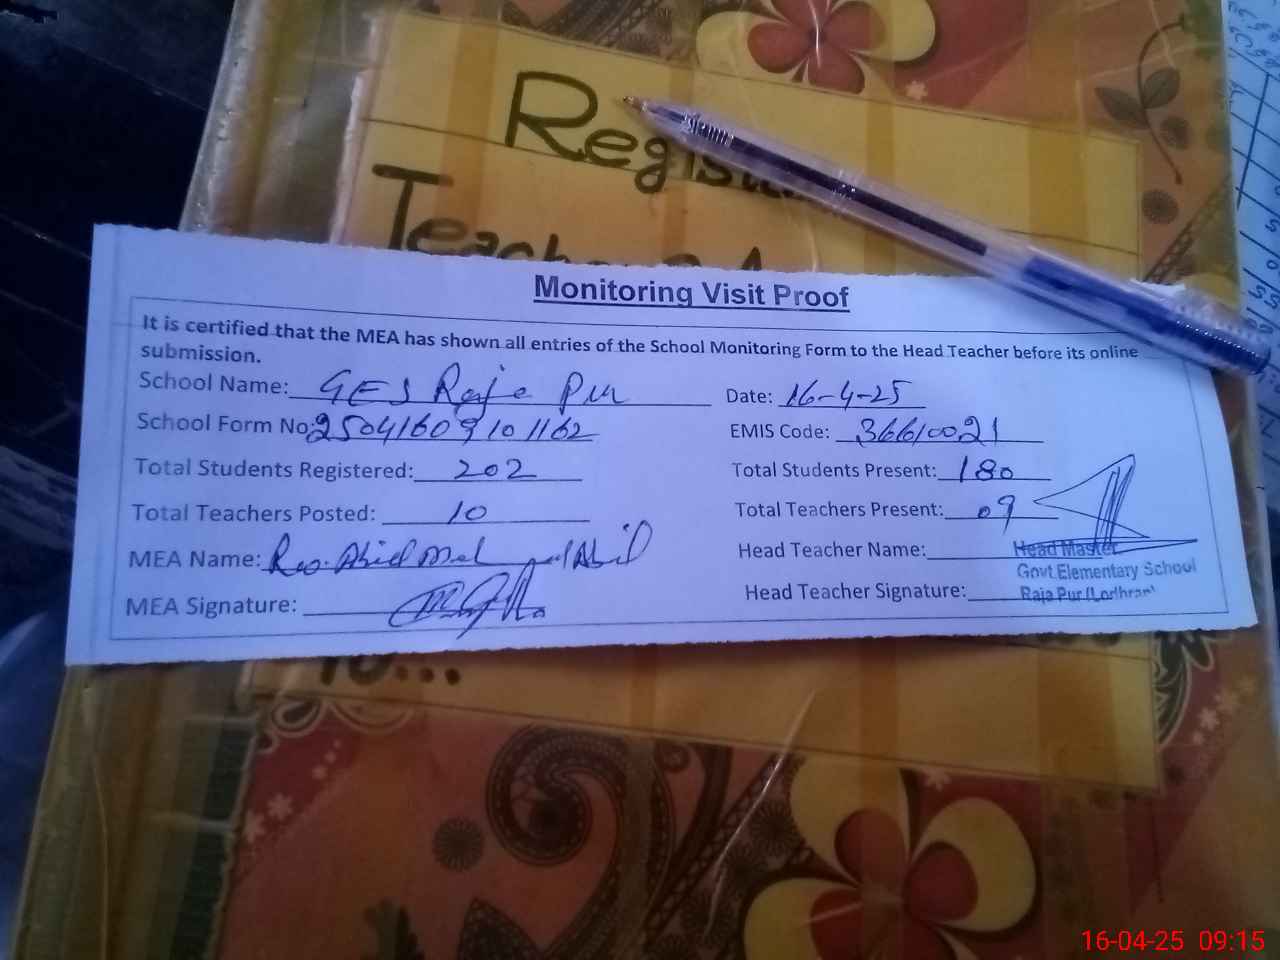 Regis
Teacher
Monitoring Visit Proof
It is certified that the MEA has shown all entries of the School Monitoring Form to the Head Teacher before its online
submission.
School Name: GES Raja Pur Date: 16-4-25
School Form No: 2504160910 1162 EMIS Code: 36610021
Total Students Registered: 202 Total Students Present: 180
Total Teachers Posted: 10 Total Teachers Present: 09
MEA Name: Head Teacher Name: Head Master
Govt. Elementary School
MEA Signature: Head Teacher Signature: Raja Pur (Lodhran)
To...
16-04-25 09:15